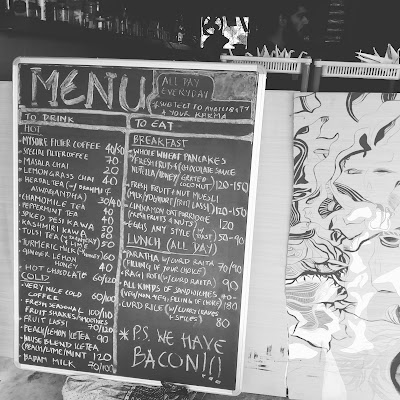 MENU
ALL DAY
EVERYDAY
*SUBJECT TO AVAILIBILITY
& YOUR KARMA
TO DRINK
HOT
- MYSORE FILTER COFFEE 40/50
- SPECIAL FILTER COFFEE 70
- MASALA CHAI 20
- LEMONGRASS CHAI 40
- HERBAL TEA (W/ BRAHMI &
ASWAGANDHA) 30/40
- CHAMOMILE TEA 60
- PEPPERMINT TEA 40
- SPICED DESI KAWA 50
- KASHMIRI KAWA
- TULSI TEA
- TURMERIC MILK
- GINGER LEMON
HONEY 40
- HOT CHOCOLATE 60/120
COLD
- VERY NICE COLD
COFFEE 60/100
- FRESH SEASONAL 100/110
FRUIT SHAKES/SMOOTHIES
- FRUIT LASSI 70/120
- PEACH/LEMON ICETEA 90
- MUSE BLEND ICETEA
(PEACH/LIME/MINT) 120
- BADAM MILK 70/100
TO EAT
BREAKFAST
- WHOLE WHEAT PANCAKES
+ FRESH FRUITS (CHOCOLATE SAUCE
NUTELLA/HONEY/GRATED
COCONUT) 120-150
- FRESH FRUIT + NUT MUESLI
(MILK/YOGHURT/FRUIT LASSI) 120-150
- CINNAMON OAT PORRIDGE
(FRESH FRUITS & NUTS) 120
- EGGS ANY STYLE (W/ TOAST) 50-90
LUNCH (ALL DAY)
- PARATHA W/CURD RAITA 70/90
(FILLING OF YOUR CHOICE)
- RAGI ROTI W/CURD RAITA 90
- ALL KINDS OF SANDWICHES
(VEG/NON-VEG, FILLING OF CHOICE) 180
- CURD RICE (W/CURRY LEAVES
+ SPICES) 80
* P.S. WE HAVE
BACON!!!